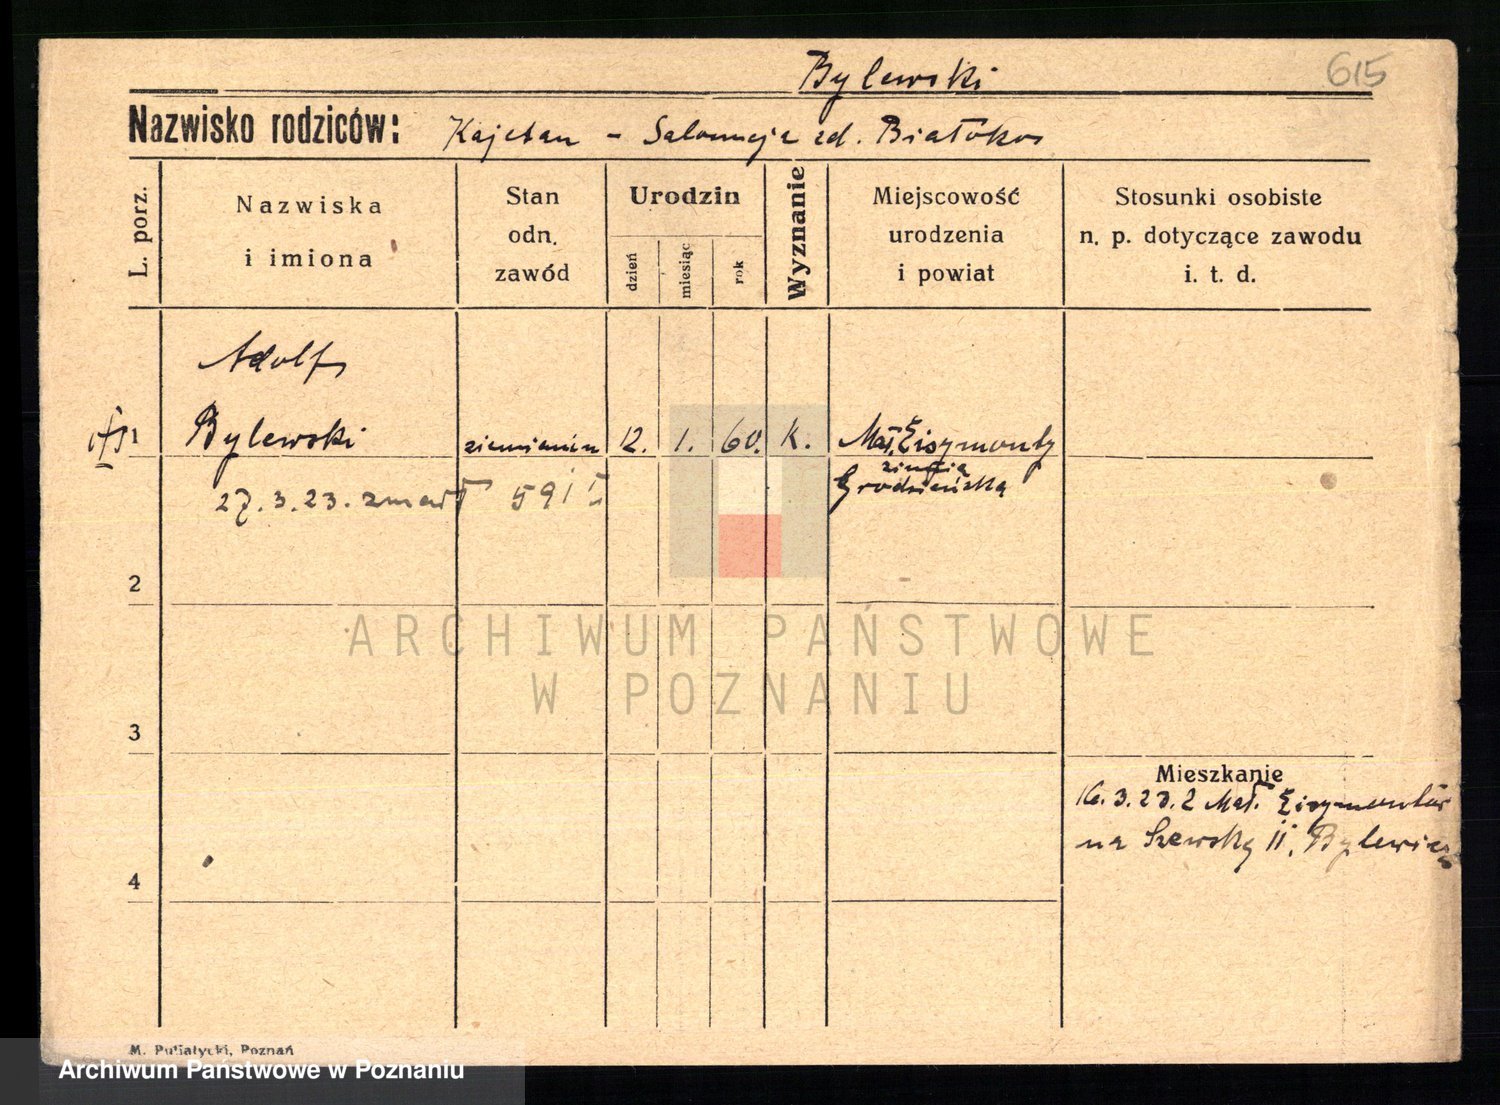 Bylewski
615
Nazwisko rodziców: Kajetan - Salomeja zd. Białokos
L. porz.
Nazwiska
i imiona
Stan
odn.
zawód
Urodzin
dzień
miesiąc
rok
Wyznanie
Miejscowość
urodzenia
i powiat
Stosunki osobiste
n. p. dotyczące zawodu
i. t. d.
Adolf
1 Bylewski ziemianin 12. 1. 60. K. Maj. Eisymonty
ziemia
Grodzieńska
27.3.23. zmarł 591
2
3
4
ARCHIWUM PAŃSTWOWE
W POZNANIU
Mieszkanie
16.3.23. z Maj. Eisymontów
na Szewską 11. Bylewicz
M. Pujiatycki, Poznań
Archiwum Państwowe w Poznaniu